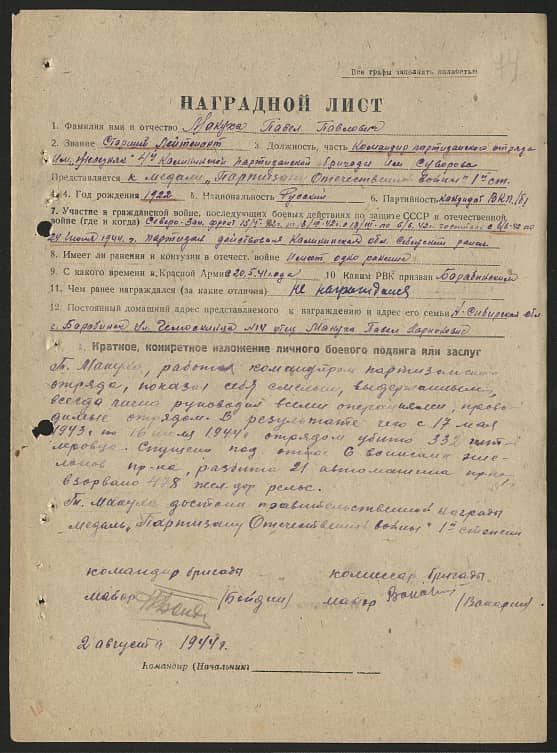 Все графы заполнять полностью
НАГРАДНОЙ ЛИСТ
1. Фамилия имя и отчество Макуха Павел Павлович
2. Звание Старший Лейтенант 3. Должность, часть Командир партизанского отряда
4й Калининской партизанской бригады им Суворова
Представляется к медали „Партизану Отечественной войны" 1й ст.
4. Год рождения 1922 5. Национальность Русский 6. Партийность кандидат ВКП/б/
7. Участие в гражданской войне, последующих боевых действиях по защите СССР и отечественной
войне (где и когда) Северо-Зап. фронт
1944 г. партизан Калининская обл.
8. Имеет ли ранения и контузии в отечест. войне Имеет одно ранение
9. С какого времени в Красной Армии с 20.5.41 года 10 Каким РВК призван Барабинским
11. Чем ранее награждался (за какие отличия) не награждался
12. Постоянный домашний адрес представляемого к награждению и адрес его семьи Н-Сибирская обл
г. Барабинск ул. отец Макуха Павел
I. Краткое, конкретное изложение личного боевого подвига или заслуг
Т. Макуха, работая командиром партизанского
отряда, показал себя смелым, выдержанным,
всегда лично руководил всеми операциями, прово-
димые отрядом. В результате чего с 17 мая
1943 г по 16 июля 1944 г отрядом убито 332 гит-
леровца. Спущено под откос 6 воинских эше-
лонов пр-ка, разбита 21 автомашина пр-ка,
взорвано 478 жел. дор рельс.
Т. Макуха достоин правительственной награды
медаль „Партизану Отечественной войны" 1й степени
командир бригады комиссар бригады
майор (Бойдин) майор (Вакарин)
2 августа 1944 г.
Командир (Начальник)